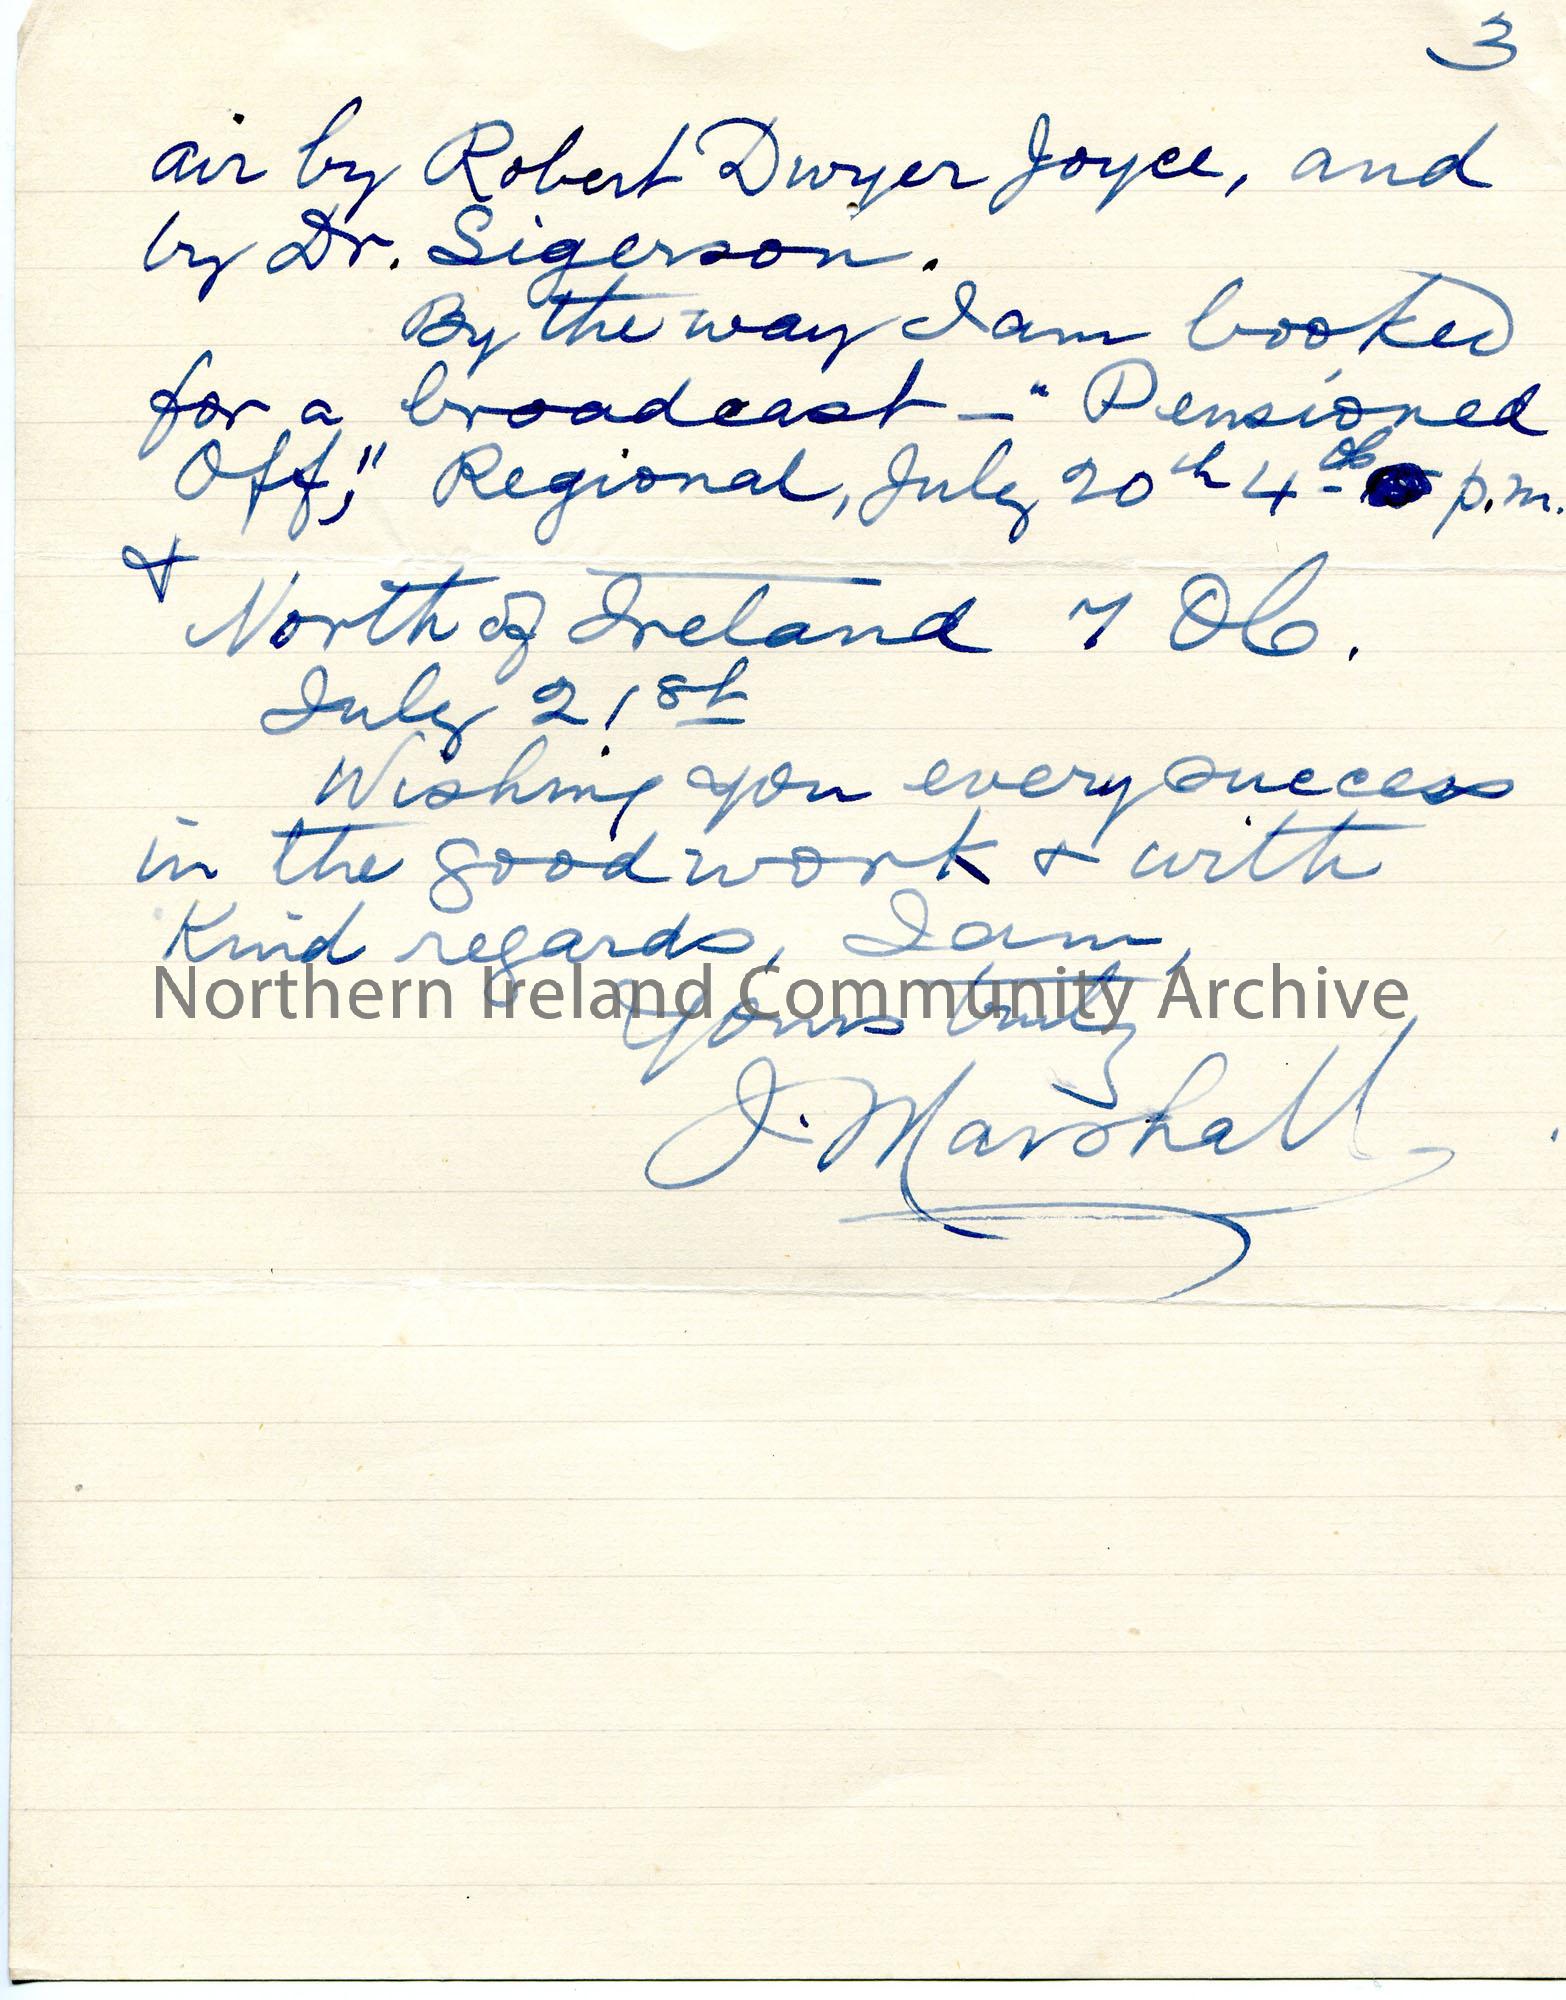 3
air by Robert Dwyer Joyce, and
by Dr. Sigerson.
By the way I am booked
for a broadcast — "Pensioned
Off," Regional, July 20th 4- p.m.
& North of Ireland 7
July 21st
Wishing you every success
in the good work & with
Kind regards, I am,
Northern Ireland Community Archive
Yours truly
J. Marshall